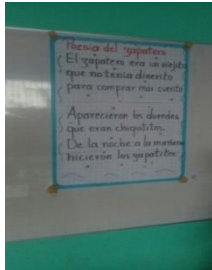 Poesia del zapatero
El zapatero era un viejito
que no tenia dinerito
para comprar mas cuerito
Aparecieron los duendes
que eran chiquititos
De la noche a la mañana
hicieron los zapatitos.